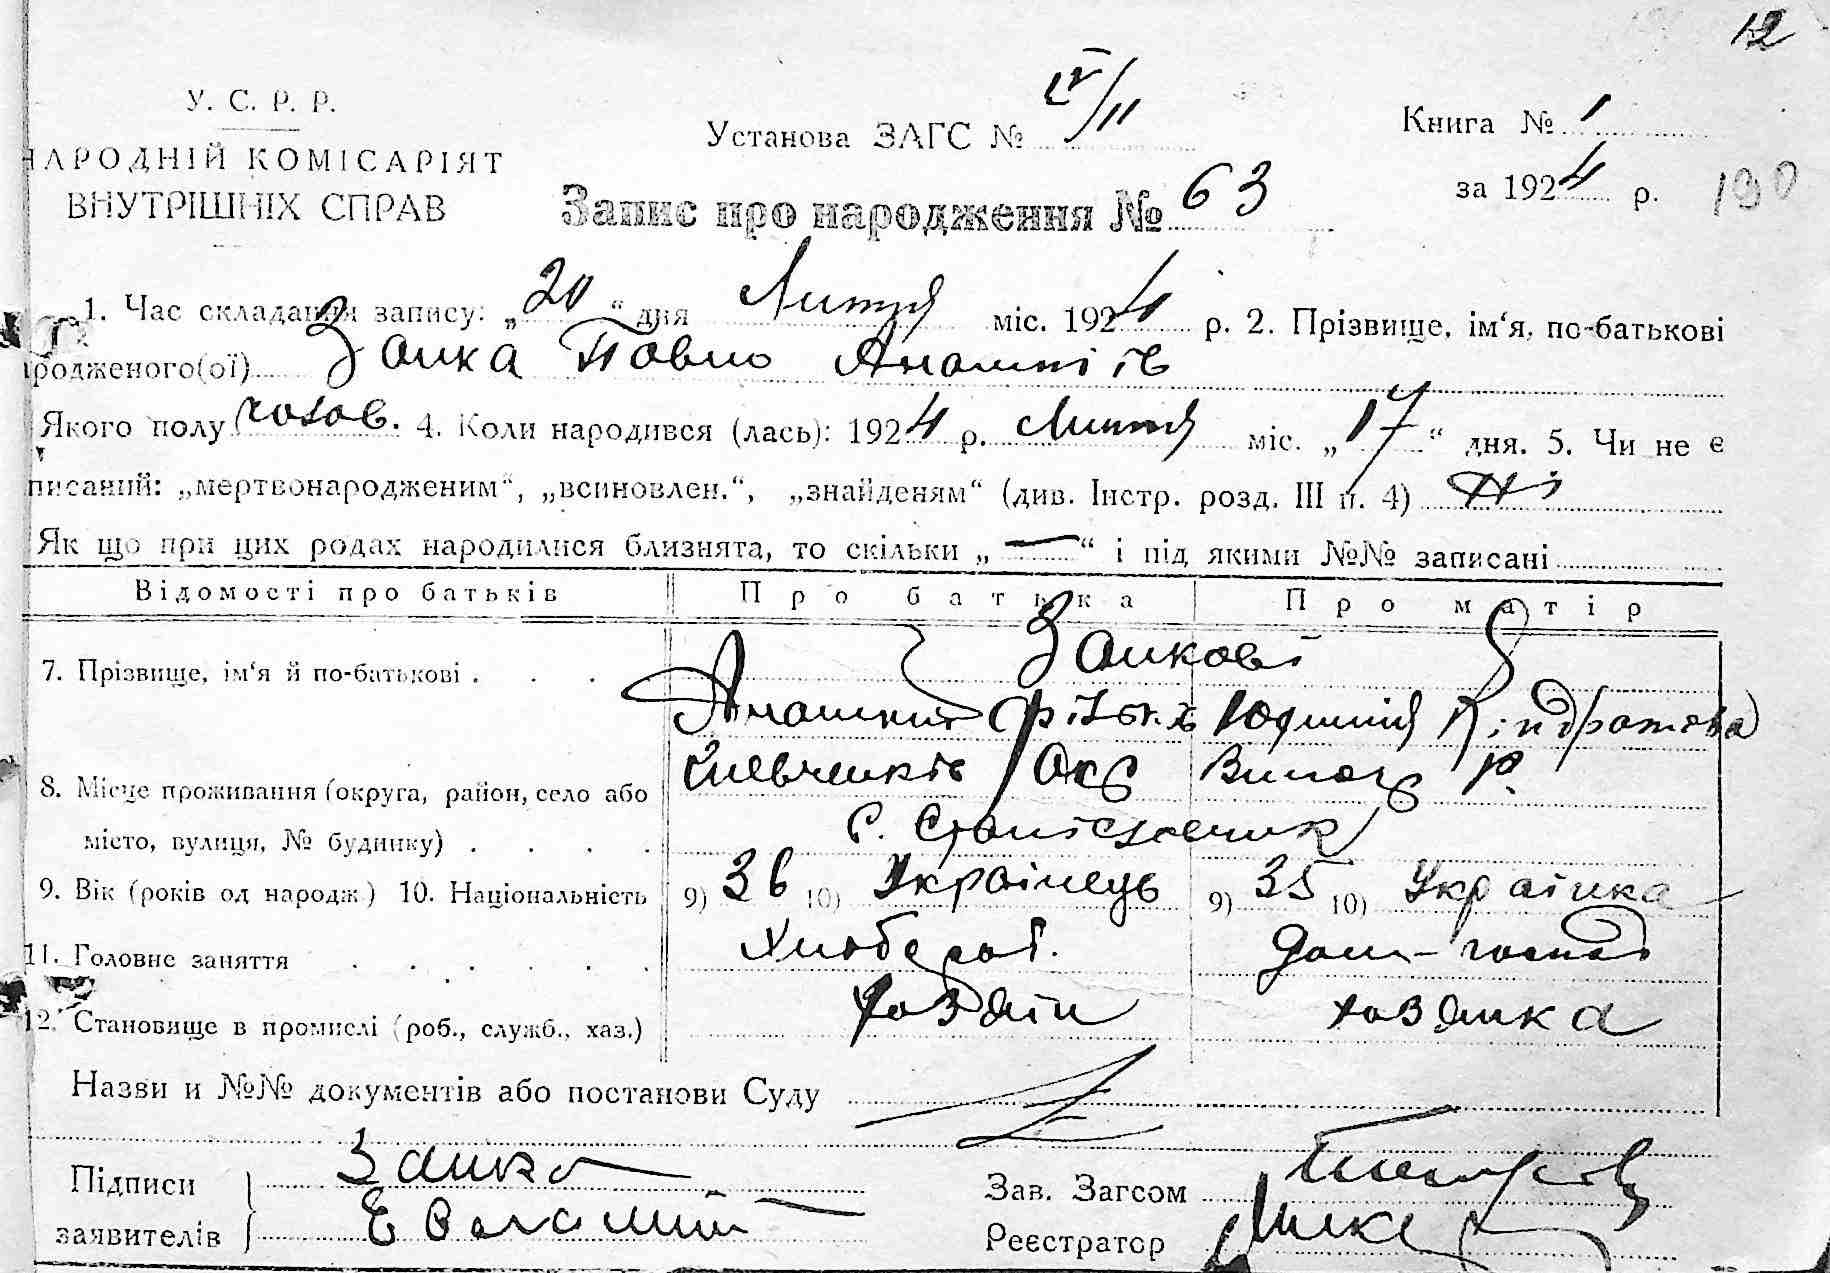 12
У. С. Р. Р.
НАРОДНІЙ КОМІСАРІЯТ
ВНУТРІШНІХ СПРАВ
Установа ЗАГС № IV/11
Книга № 1
за 1924 р. 190
Запис про народження № 63
1. Час складання запису: „20“ дня Лютня міс. 1924 р. 2. Прізвище, ім‘я, по-батькові
родженого(ої) Заика Павло
Якого полу чолов. 4. Коли народився (лась): 1924 р. Лютня міс. „17“ дня. 5. Чи не є
писаний: „мертвонародженим“, „всиновлен.“, „знайденям“ (див. Інстр. розд. III п. 4) Ні
Як що при цих родах народилися близнята, то скільки „—“ і під якими №№ записані
Відомості про батьків Про батька Про матір
Заикові
7. Прізвище, ім‘я й по-батькові Кіндратова
Шевченків Окр
8. Місце проживання (округа, район, село або
місто, вулиця, № будинку)
с.
9. Вік (років од народж.) 10. Національність 9) 36 10) Українець 9) 35 10) Українка
11. Головне заняття Хлібороб.
12. Становище в промислі (роб., служб., хаз.) Хозяін хозяика
Назви и №№ документів або постанови Суду
Підписи Заика
Зав. Загсом
заявителів
Реєстратор